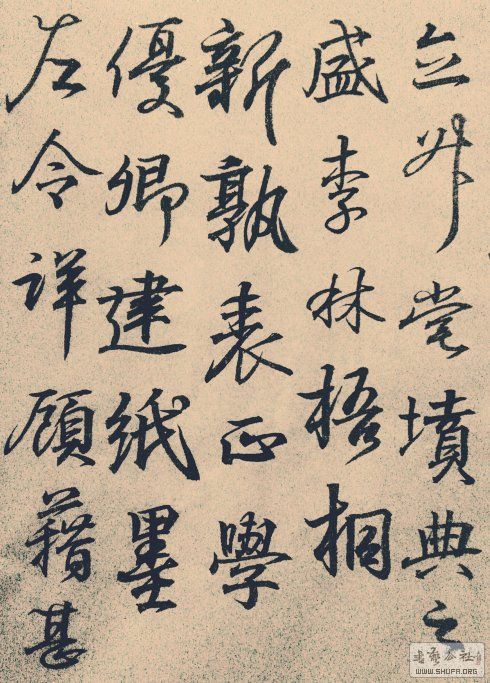 立墳典之
盛李林梧桐
新孰表正學
優卿建紙墨
左令詳顧藉甚
WWW.SHUFA.ORG